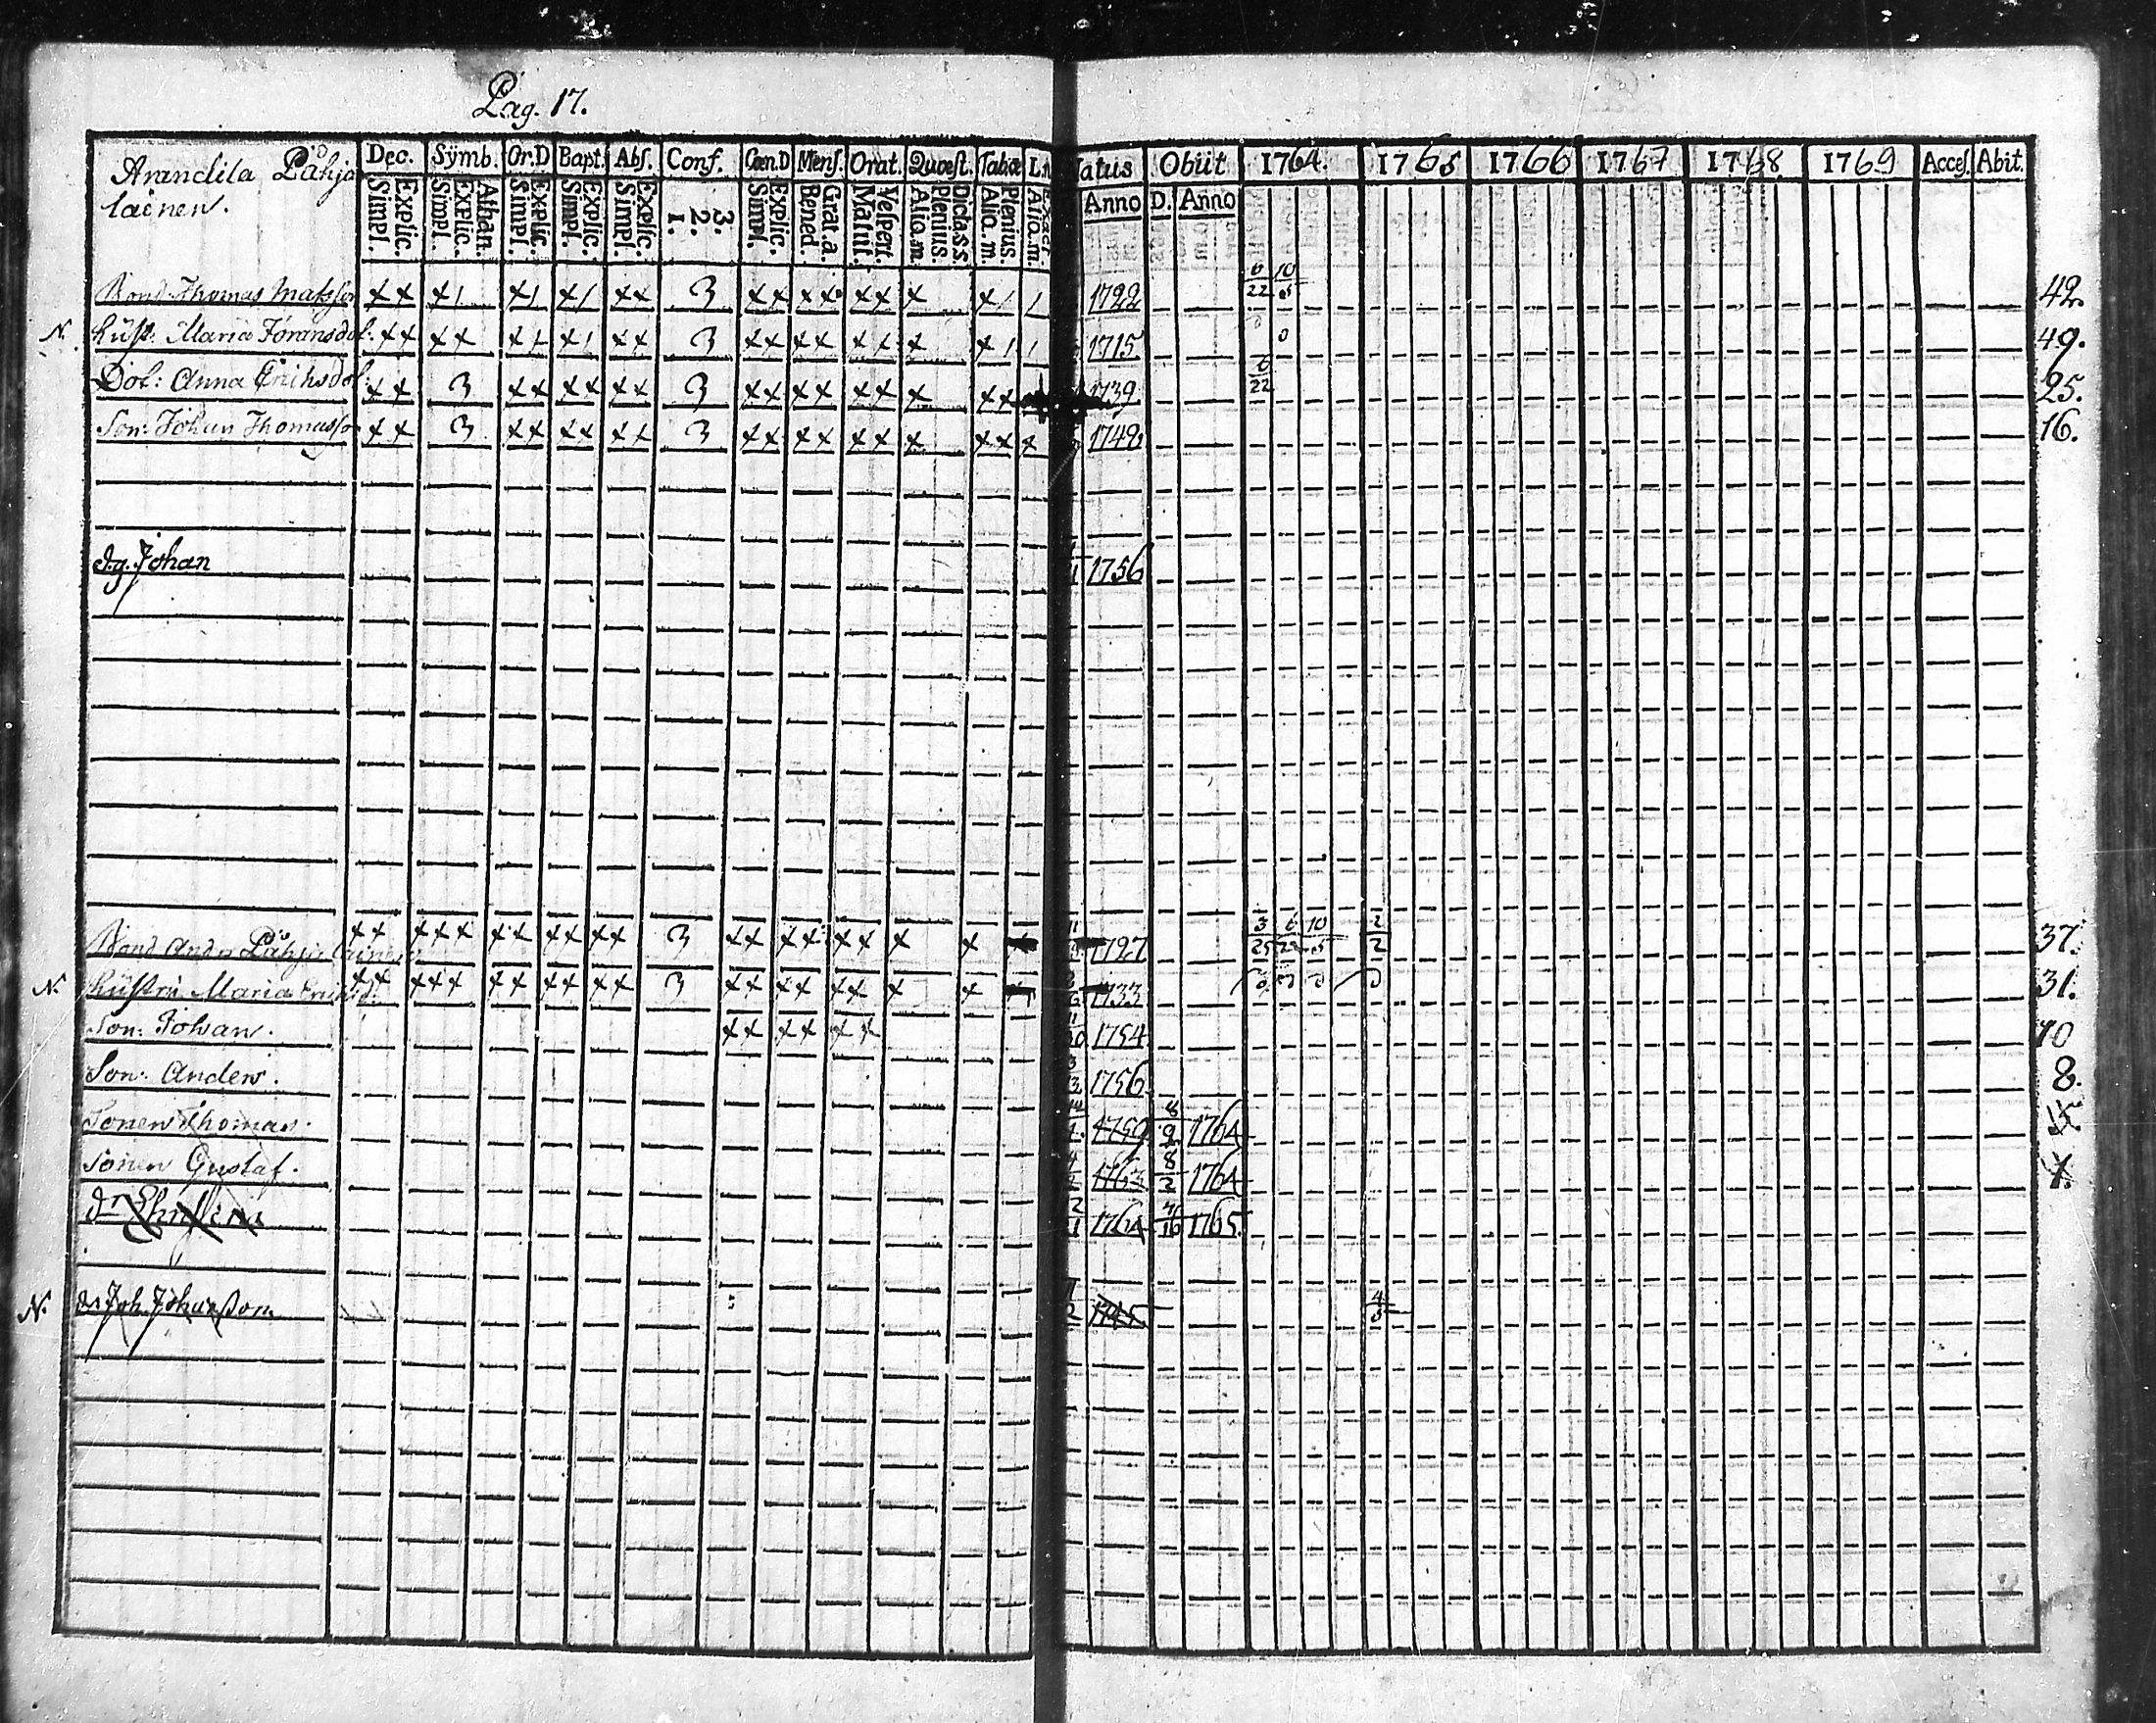 Pag. 17.
Dec. Symb. Or.D Bapt. Abs. Conf. Cœn.D Mens. Orat. Quæst. Tabæ L.n Natus Obiit 1764. 1765 1766 1767 1768. 1769 Acces. Abit.
Påhja
lainen.
Simpl. Explic. Simpl. Explic. Athan. Simpl. Explic. Simpl. Explic. Simpl. Explic. 1. 2. 3. Simpl. Explic. Bened. Grat.a. Matut. Vespert. Alio.m. Plenius Dicta.s.s. Alio.m. Plenius. Alio.m. Exact. Anno D. Anno
Bond: Thomas Matsson ×× ×1 ×1 ×1 ×× 3 ×× ×× ×× × ×1 1 1722 6/22 10/5 42.
N. hust. Maria Göransdot. ×× ×× ×× ×1 ×× 3 ×× ×× ×× × ×1 1 1715 49.
Dot: Anna Erichsdot. ×× 3 ×× ×× ×× 3 ×× ×× ×× × ×× 1739 6/22 25.
Son: Johan Thomasson ×× 3 ×× ×× ×× 3 ×× ×× ×× × ×× × 1748 16.
d.g. Johan 1756
Bond Anders Påhjalainen ×× ××× ×× ×× ×× 3 ×× ×× ×× × × 1727 3/25 6/22 10/5 2/2 37.
N. hustru Maria Erichsd. ×× ××× ×× ×× ×× 3 ×× ×× ×× × × 1733 31.
Son: Johan. ×× ×× ×× 1754 10
Son: Anders. 1756. 8.
Sonen Thomas. 1759 8/9 1764
Sonen Gustaf. 1763 8/2 1764
1764 1765.
N. Joh. Johansson 1745 4/5